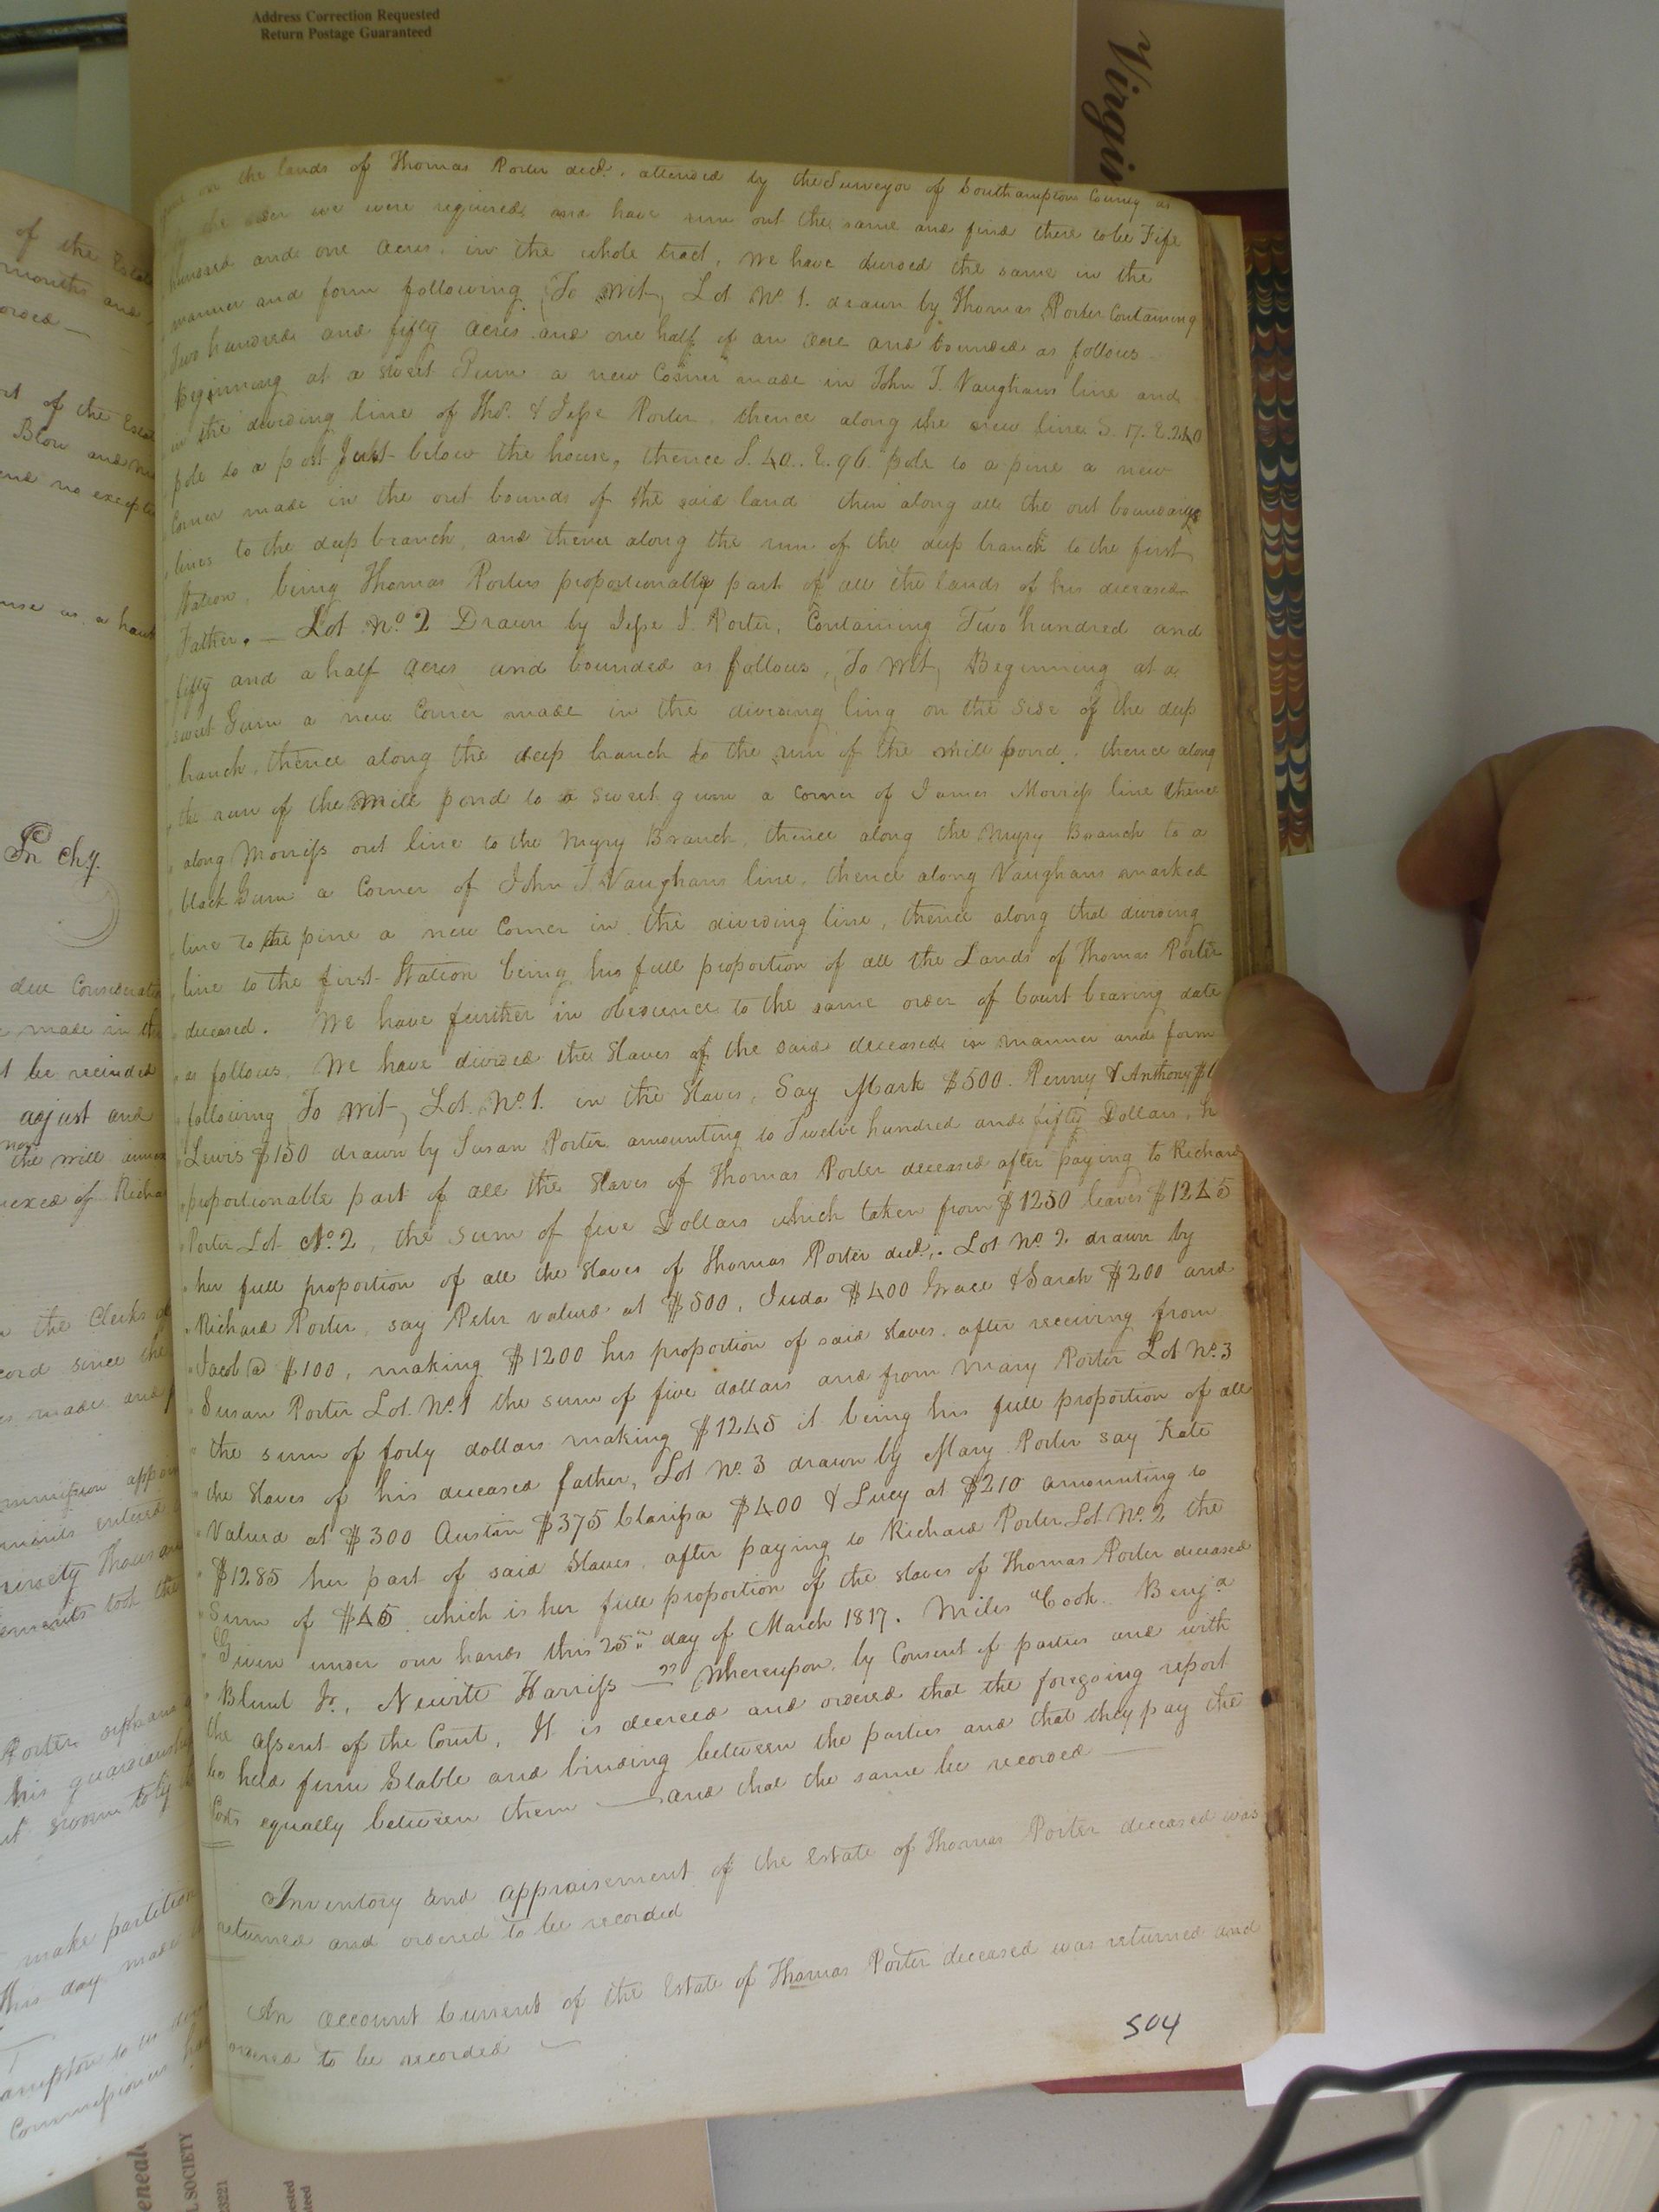 Address Correction Requested
Return Postage Guaranteed
Virgin
on the lands of Thomas Porter decd. attended by the Surveyor of Southampton County as
by the order we were required, and have run out the same and find there to be Five
hundred and one acres, in the whole tract, We have divided the same in the
manner and form following, To Wit, Lot No. 1. drawn by Thomas Porter Containing
Two hundred and fifty acres and one half of an acre and bounded as follows
Beginning at a sweet Gum a new Corner made in John T. Vaughans line and
in the dividing line of Tho. & Jesse Porter thence along the new line S. 17. E. 240
pole to a post Just below the house, thence S. 40. E. 96 pole to a pine a new
Corner made in the out bounds of the said land then along all the out boundaries
lines to the deep branch, and thence along the run of the deep branch to the first
Station, being Thomas Porters proportionably part of all the lands of his deceased
Father. — Lot No. 2 Drawn by Jesse J. Porter, Containing Two hundred and
fifty and a half acres and bounded as follows, To Wit, Beginning at a
sweet Gum a new Corner made in the dividing ling on the side of the deep
branch, thence along the deep branch to the run of the mill pond, thence along
the run of the Mill pond to a sweet gum a corner of James Morriss line thence
along Morriss out line to the Miry Branch, thence along the Miry Branch to a
black Gum a Corner of John T. Vaughans line, thence along Vaughans marked
line to the pine a new Corner in the dividing line, thence along that dividing
line to the first Station being his full proportion of all the Lands of Thomas Porter
deceased. We have further in obedience to the same order of Court bearing date
as follows, We have divided the Slaves of the said deceased in manner and form
following To Wit, Lot No. 1. in the Slaves, Say Mark $500. Penny & Anthony
Lewis $150 drawn by Susan Porter amounting to Twelve hundred and fifty Dollars,
proportionable part of all the Slaves of Thomas Porter deceased after paying to Richard
Porter Lot No. 2, the sum of five Dollars which taken from $1250 leaves $1245
her full proportion of all the Slaves of Thomas Porter decd. Lot No. 2 drawn by
Richard Porter, say Peter valued at $500, Juda $400 Grace & Sarah $200 and
Jacob @ $100, making $1200 his proportion of said slaves, after receiving from
Susan Porter Lot No. 1 the sum of five dollars and from Mary Porter Lot No. 3
the sum of forty dollars making $1245 it being his full proportion of all
the Slaves of his deceased father, Lot No. 3 drawn by Mary Porter say Kate
Valued at $300 Austin $375 Clarissa $400 & Lucy at $210 amounting to
$1285 her part of said Slaves, after paying to Richard Porter Lot No. 2 the
Sum of $45 which is her full proportion of the slaves of Thomas Porter deceased
Given under our hands this 25th day of March 1817. Miles Cook. Benja
Blunt Jr., Newitt Harriss —" Whereupon, by Consent of parties and with
the assent of the Court, It is decreed and ordered that the foregoing report
be held firm Stable and binding between the parties and that they pay the
Costs equally between them — and that the same be recorded —
Inventory and appraisement of the Estate of Thomas Porter deceased was
returned and ordered to be recorded
An account Current of the Estate of Thomas Porter deceased was returned and
ordered to be recorded —
504
of the Estate
months and
rt of the Estate
Blow and
and no except
Pr Chy.
due Consideration
made in the
be recinded
adjust and
now
the will annex
nexed of Richa
the Clerks
cord since the
made and
ments entered
ninety Thousand
ements took the
Porter orphans
his guardianship
make partition
This day made
Commissioners
L SOCIETY
23221